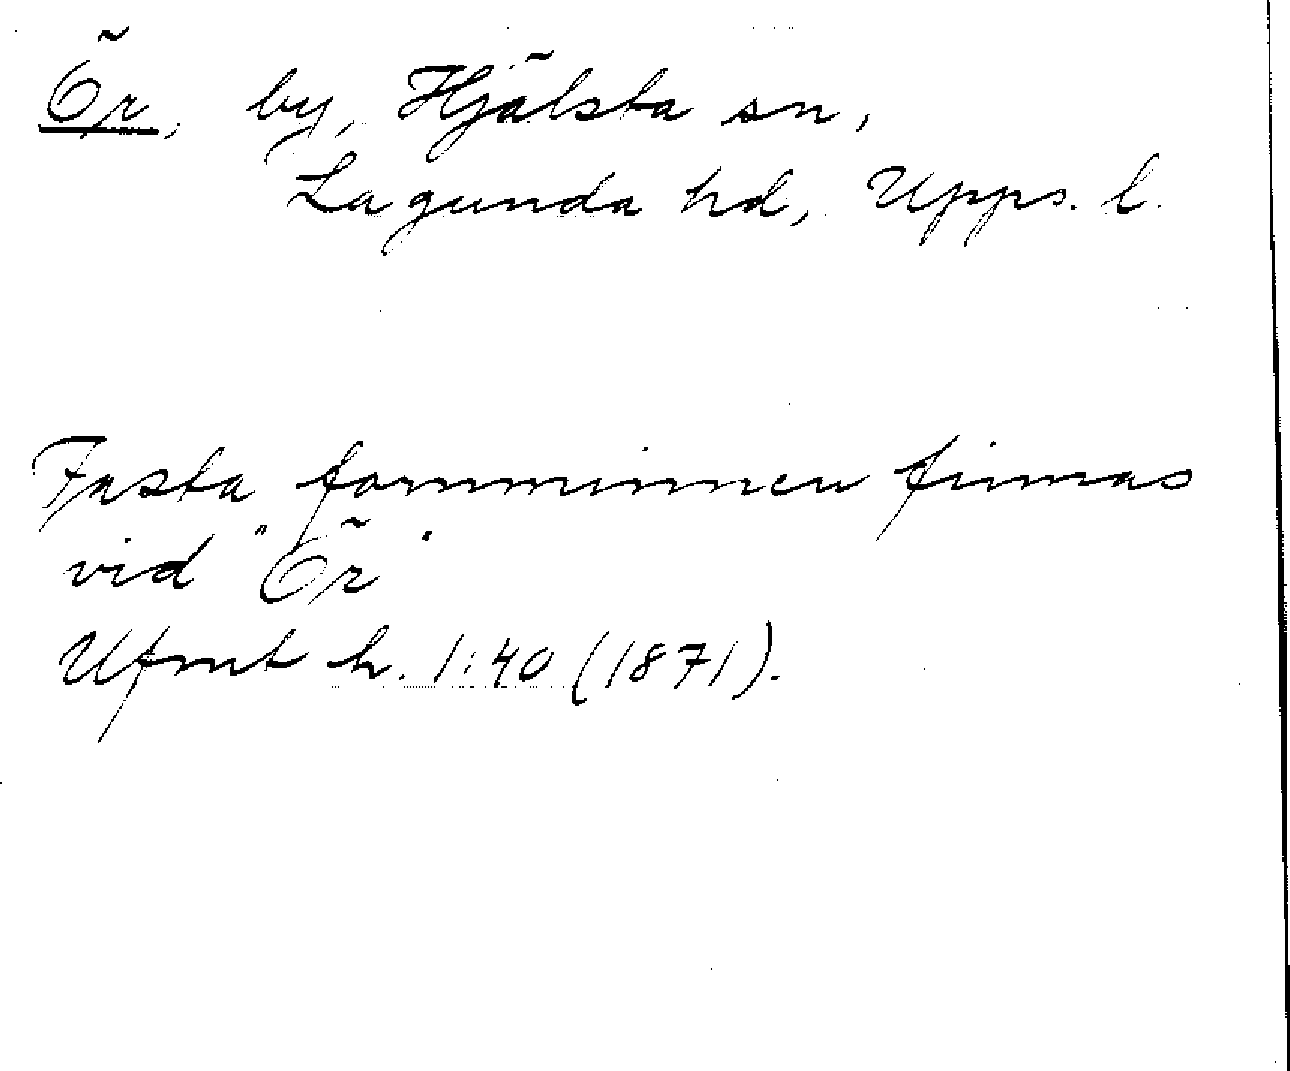 Ör, by, Hjälsta sn,
Lagunda hd, Upps. l.
Fasta fornminnen finnas
vid "Ör"
Ufmt h. 1:40 (1871).